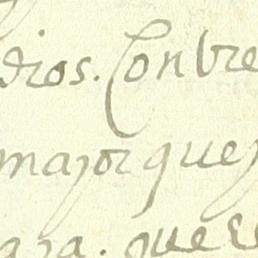 dios. Conbre
major que
ara. que